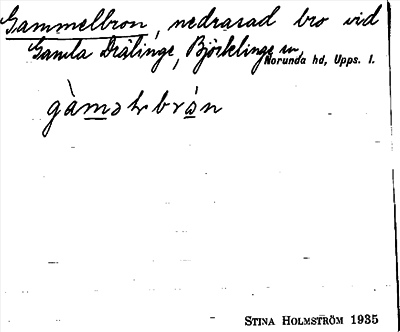 Gammelbron, nedrasad bro vid
Gamla Drälinge, Björklinge sn,
Norunda hd, Upps. l.
STINA HOLMSTRÖM 1935